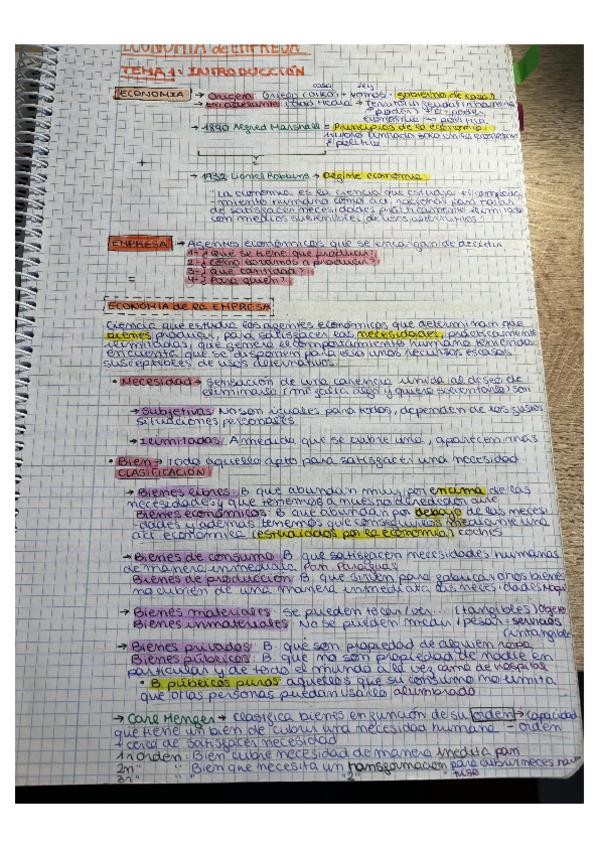 ECONOMIA de EMPRESA
TEMA 1: INTRODUCCIÓN
ECONOMIA → Origen: Griego (oikos + nomos = gobierno de casa)
casa ley
→ Edad Media → Territorio feudal
+ poder
economica política
→ 1890 Alfred Marshall = Principios de la economia
economica
y política
+
→ 1932 Lionel Robbins → Define economia
"La economia es la ciencia que estudia el comporta-
miento humano como
de satisfacer necesidades prácticamente ilimitadas
con medios susceptibles de usos alternativos"
EMPRESA → Agentes económicos que se encargan de decidir
1- ¿Que se tiene que producir?
2- ¿Cómo vamos a producir?
3- ¿Que cantidad?
4- ¿Para quien?
=
ECONOMIA de la EMPRESA
Ciencia que estudia los agentes económicos que determinan que
bienes producir, para satisfacer las necesidades, prácticamente
ilimitadas, que genera el comportamiento humano teniendo
en cuenta que se disponen para ello unos recursos escasos
susceptibles de usos alternativos.
• Necesidad → Sensacion de una carencia unida al deseo de
eliminarla (me falta algo y quiero solventarlo) son
→ Subjetivas: No son iguales para todos, dependen de los gustos
situaciones personales
→ Ilimitadas: A medida que se cubre una, aparecen más
• Bien → Todo aquello apto para satisfacer una necesidad
CLASIFICACIÓN
→ Bienes libres: B que abundan muy por encima de las
necesidades y que tenemos a nuestro alrededor aire
Bienes económicos: B que abundan por debajo de las neces-
dades y además tenemos que conseguirlos mediante una
act económica (estudiados por la economía) coches
→ Bienes de consumo: B que satisfacen necesidades humanas
de manera inmediata Pan Paraguas
Bienes de produccion: B que sirven para fabricar otros bienes
no cubren de una manera inmediata las necesidades
→ Bienes materiales: Se pueden tocar/ver... (tangibles)
Bienes inmateriales: No se pueden medir / pesar: servicios
(intangible
→ Bienes privados: B que son propiedad de alguien ropa
Bienes públicos: B que no son propiedad de nadie en
particular y de todo el mundo a la vez cama de hospital
• B públicos puros: aquellos que su consumo no limita
que otras personas puedan usarlo alumbrado
→ Carl Menger → clasifica bienes en función de su orden → capacidad
que tiene un bien de cubrir una necesidad humana - orden
+ cerca de satisfacer necesidad
1r orden: Bien cubre necesidad de manera inmedita pan
2n " " Bien que necesita un transformación para cubrir neces
3r " " " 2 "